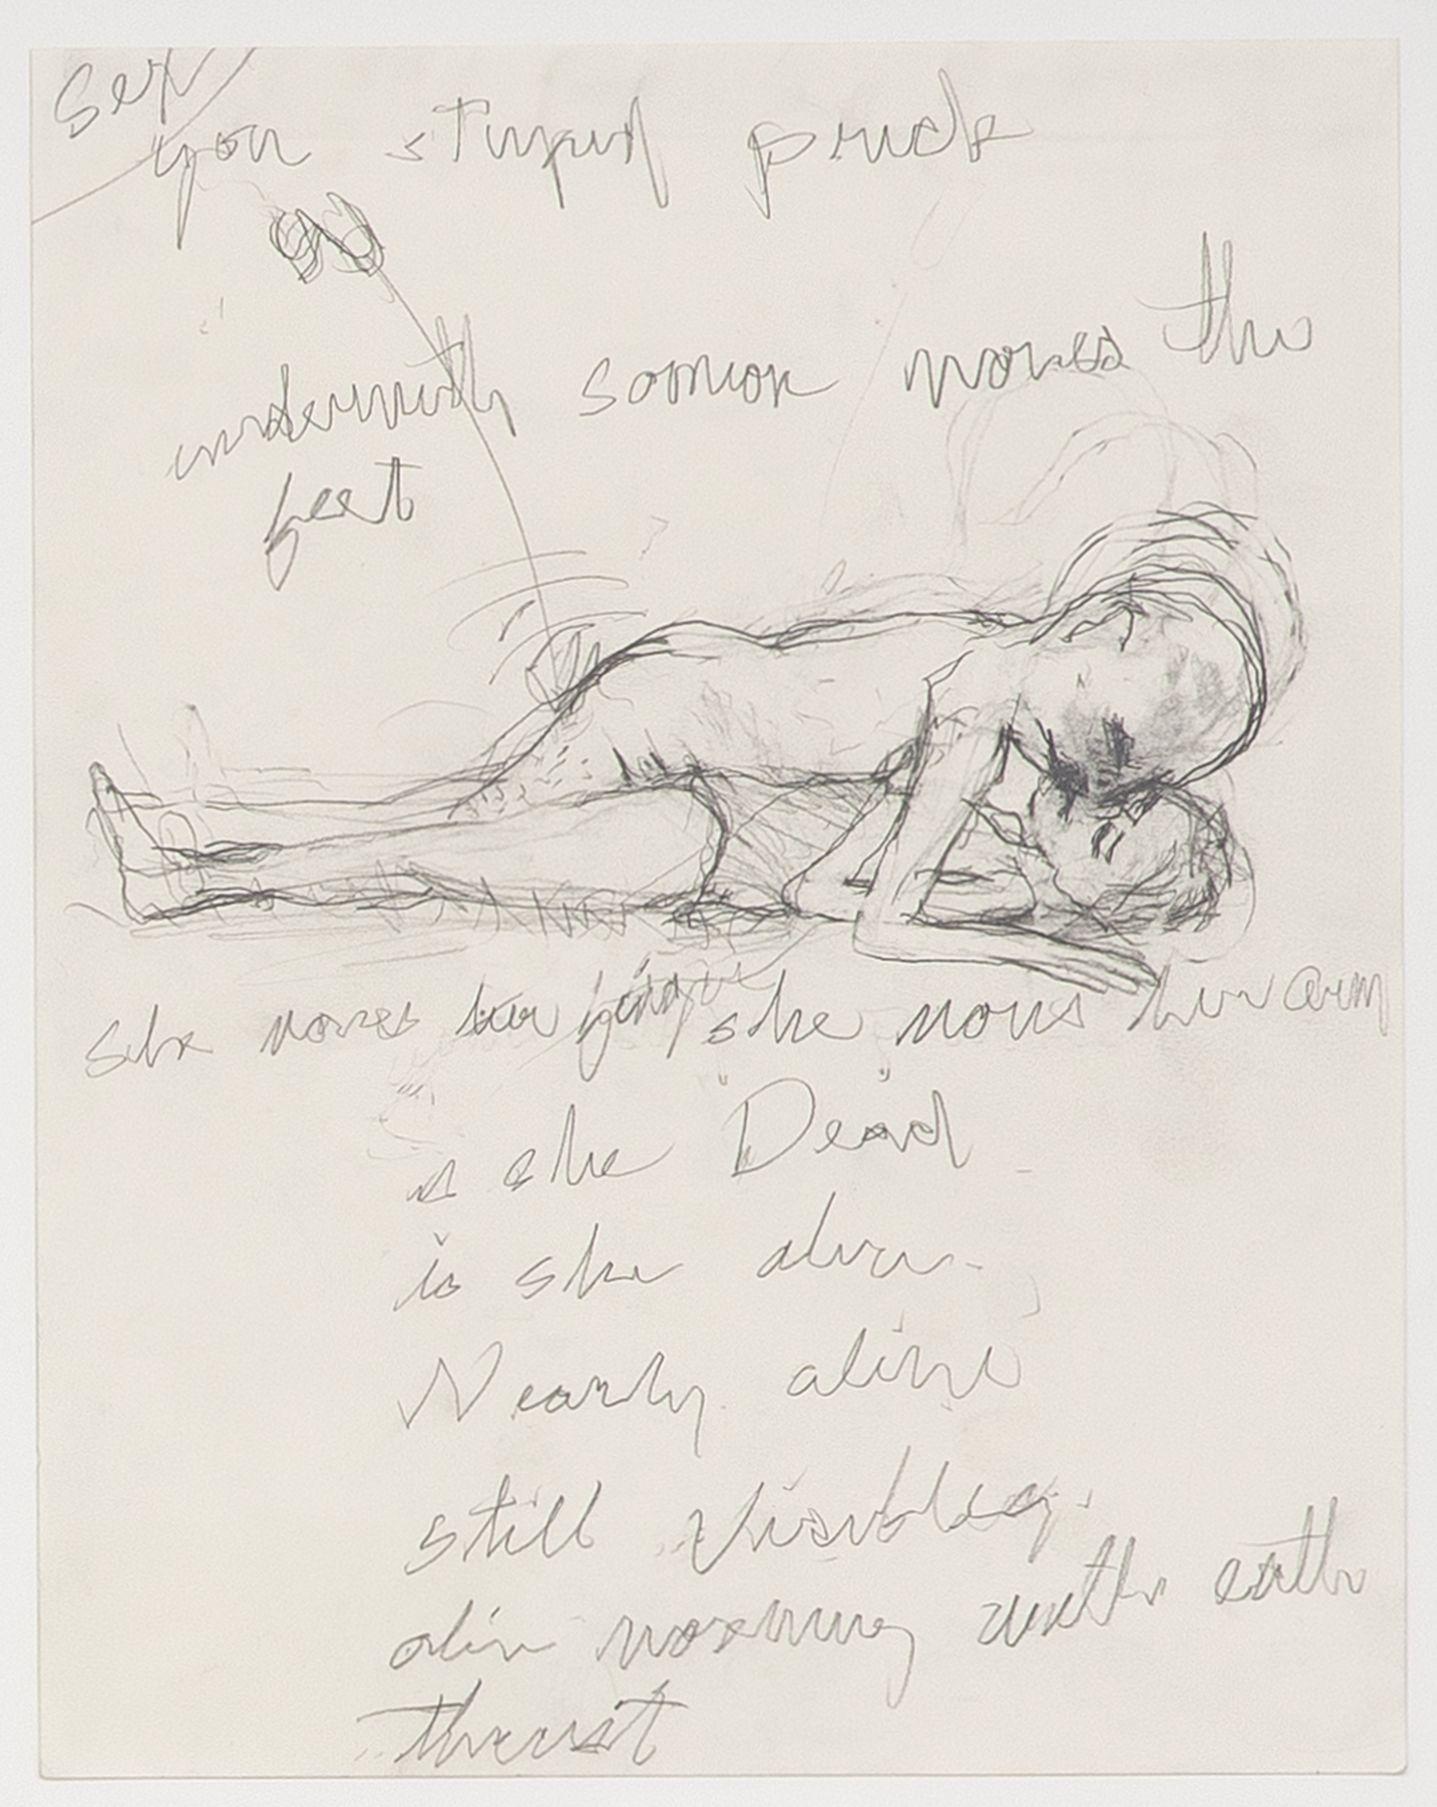 Sex
you stupid prick
underneith someone moves the
feet
she moves her finger / she moves her arm
is she Dead
is she alive
Nearly alive
still visibley.
aliv moening with eath
thrust